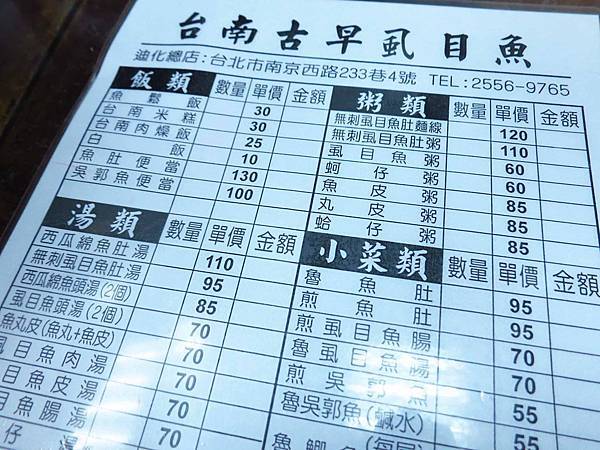 台南古早虱目魚
迪化總店：台北市南京西路233巷4號 TEL:2556-9765
飯類 數量 單價 金額
魚鬆飯 30
台南米糕 30
台南肉燥飯 25
白飯 10
魚肚便當 130
吳郭魚便當 100
湯類 數量 單價 金額
西瓜綿魚肚湯 110
無刺虱目魚肚湯 95
西瓜綿魚頭湯(2個) 85
虱目魚頭湯(2個) 70
魚丸皮(魚丸+魚皮) 70
目魚肉湯 70
目魚皮湯 70
目魚腸湯 70
仔湯
粥類 數量 單價 金額
無刺虱目魚肚麵線 120
無刺虱目魚肚粥 110
虱目魚粥 60
蚵仔粥 60
魚皮粥 85
丸皮粥 85
蛤仔粥 85
小菜類 數量 單價 金額
魯魚肚 95
煎魚肚 95
煎虱目魚腸 70
魯虱目魚頭 70
煎吳郭魚 55
魯吳郭魚(鹹水) 55
魯鯽魚(每尾)